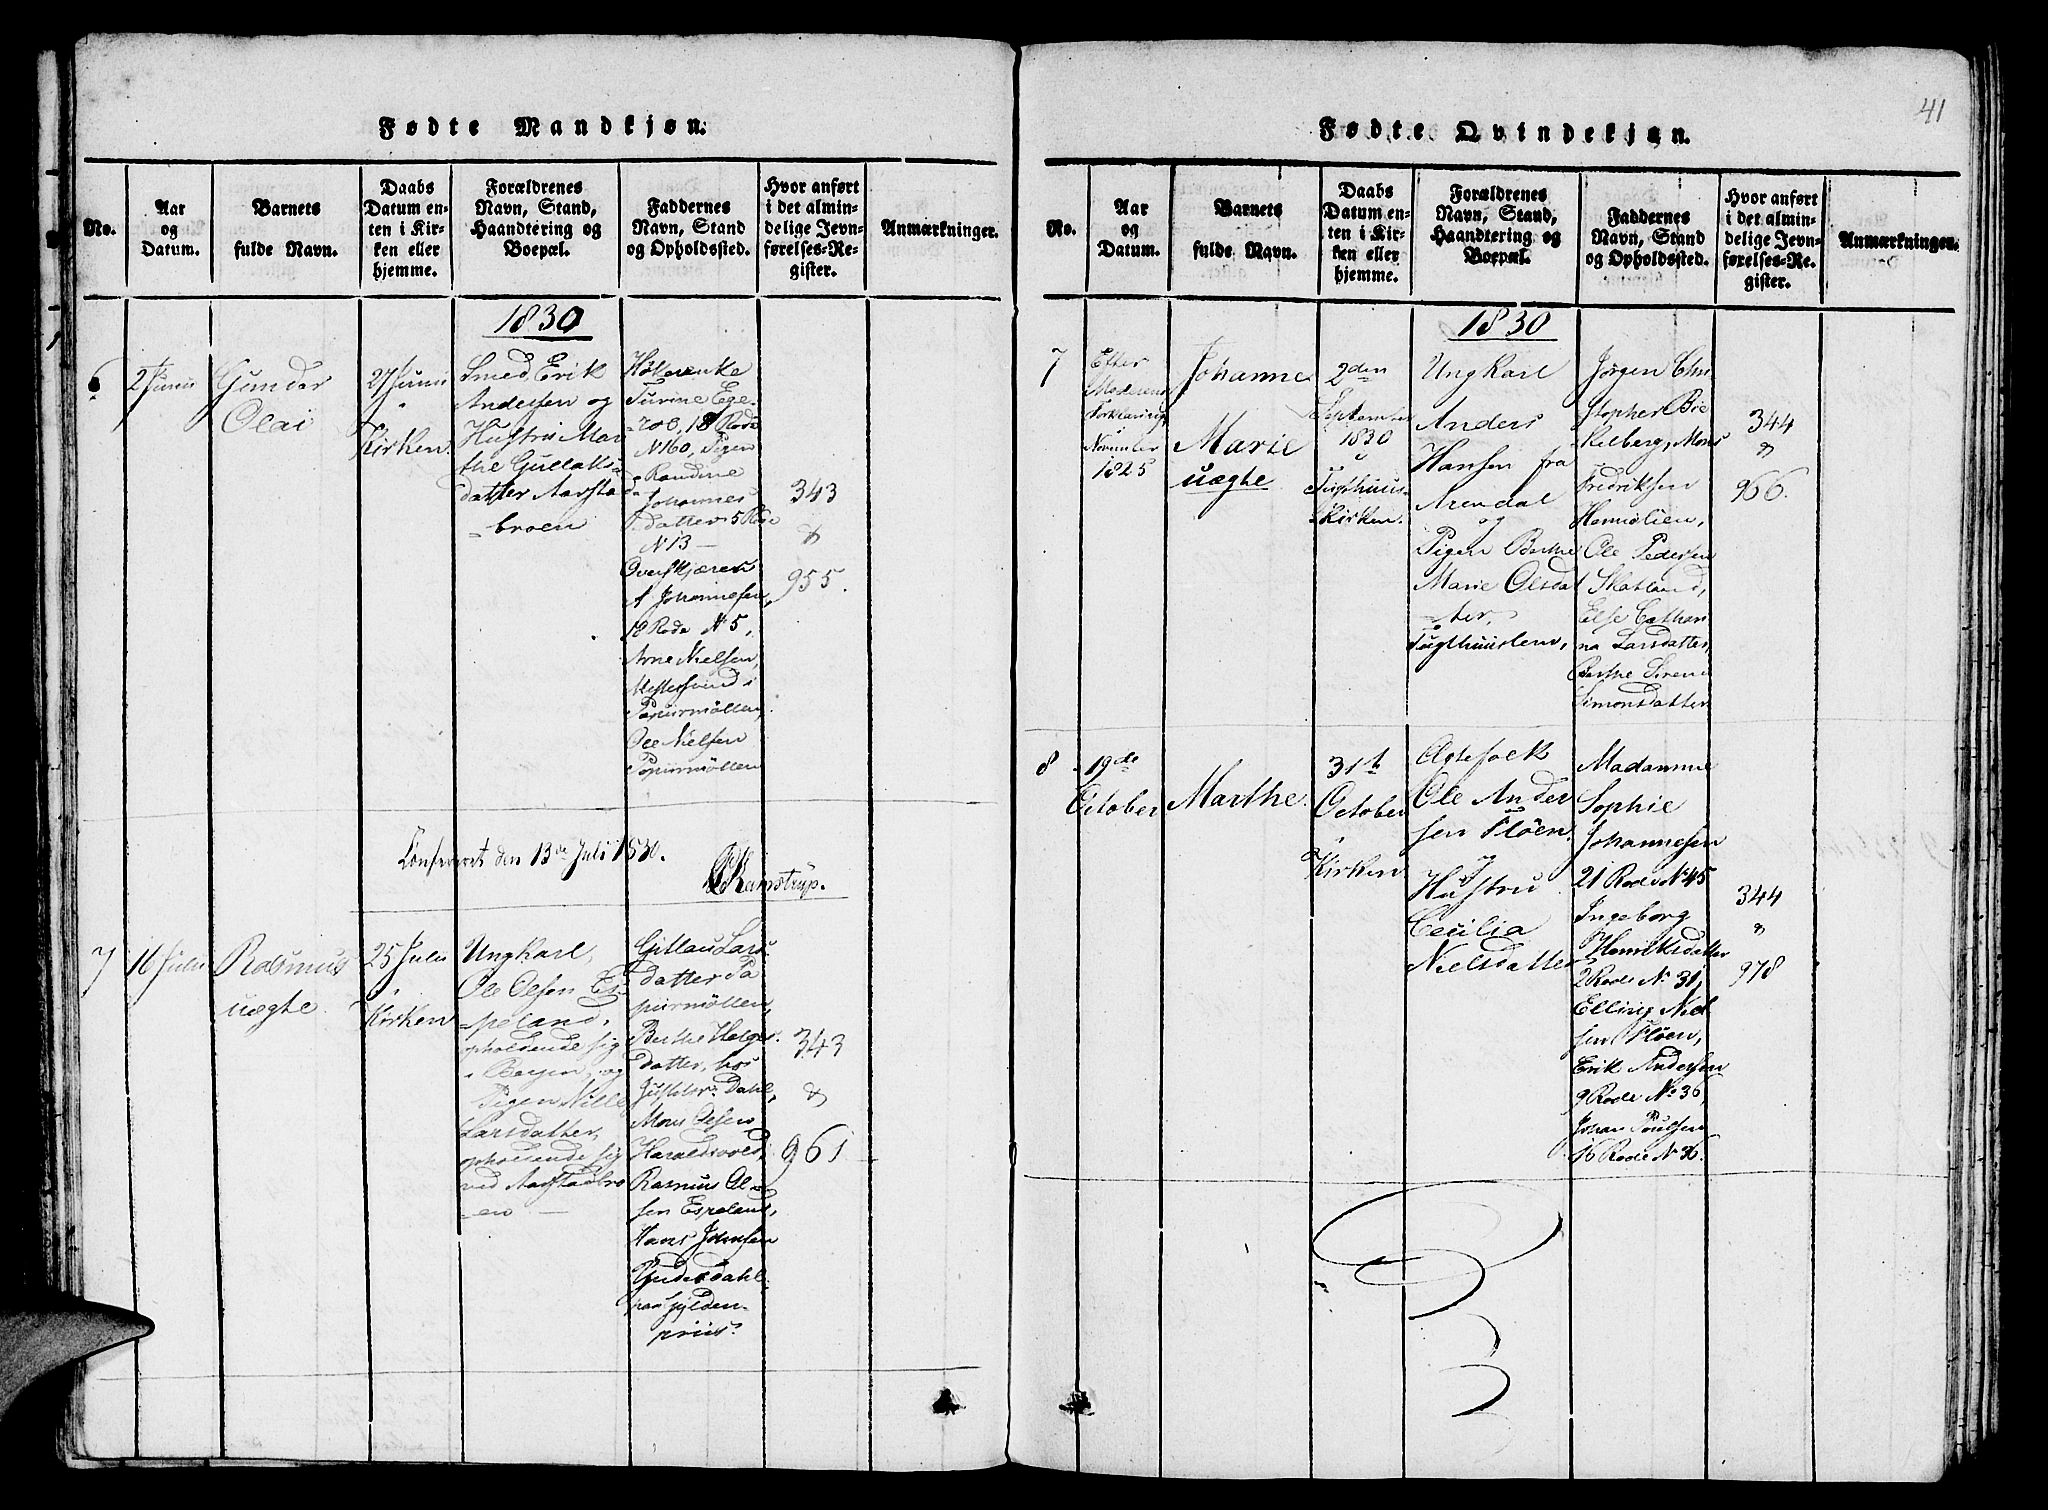 Fødte Mandkjøn.
No.
Aar
og
Datum.
Barnets
fulde Navn.
Daabs
Datum en-
ten i Kir-
ken eller
hjemme.
Forældrenes
Navn, Stand,
Haandtering og
Boepæl.
Faddernes
Navn, Stand
og Opholdssted.
Hvor anført
i det almin-
delige Jevn-
førelses-Re-
gister.
Anmærkninger.
1830
6
2 Junii
Gunder
Olai
27 Junii
Kirken
Smed, Erik
Andersen og
Hustru Mar
the Gullaks
datter Aarsta
broen
Høkerenke
18 Rode
N 160, Pigen
Randine
Johannes
datter 5 Rode
N 13 -
A Johannesen,
18 Rode No 5,
Arne Nielsen,
Mestersvend i
Papiirmøllen,
Ole Nielsen
Papiirmøllen
343
&
955.
Confereret den 13de Juli 1830.
Kamstrup.
7
16 Julii
Rasmus
uægte.
25 Julii
Kirken
Ungkarl,
Ole Olsen Es-
peland,
opholdende sig
i Bergen, og
Pigen Nille
Larsdatter,
opholdende sig
ved Aarstadbro
en -
Lars
datter Pa
piirmøllen,
Berthe Helges
datter, hos
Dahl,
Mons Olsen
Haraldsvold,
Rasmus Ol
sen Espeland,
Hans Johnsen
paa Gylden
priis.
343
&
961
41
Fødte Qvindekjøn.
No.
Aar
og
Datum.
Barnets
fulde Navn.
Daabs
Datum en-
ten i Kir-
ken eller
hjemme.
Forældrenes
Navn, Stand,
Haandtering og
Boepæl.
Faddernes
Navn, Stand
og Opholdssted.
Hvor anført
i det almin-
delige Jevn-
førelses-Re-
gister.
Anmærkninger.
1830
7
Efter
Moderens
Forklaring
November
1825
Johanne
Marie
uægte.
2den
September
1830
i
Tugthuus-
Kirken.
Ungkarl
Anders
Hansen fra
Arendal
og
Pigen Berthe
Marie Olsdat
ter,
Tugthuuslem,
Jørgen Chri
stopher Bie
kelberg, Mons
Fredriksen
Ole Pedersen
Skatland,
Else Cathari
na Larsdatter,
Berthe Sirene
Simonsdatter
344
&
966.
8
19de
October
Marthe.
31t
October
i
Kirken
Ægtefolk
Ole Ander
sen Fløen.
og
Hustru
Cecilia
Nielsdatter
Madamme
Sophie
Johannesen
21 Rode No 45
Ingeborg
Henriksdatter
2 Rode No 31,
Elling Niel
sen Fløen,
Erik Andersen
9 Rode No 36,
Johan Poulsen
16 Rode No 36.
344
&
978